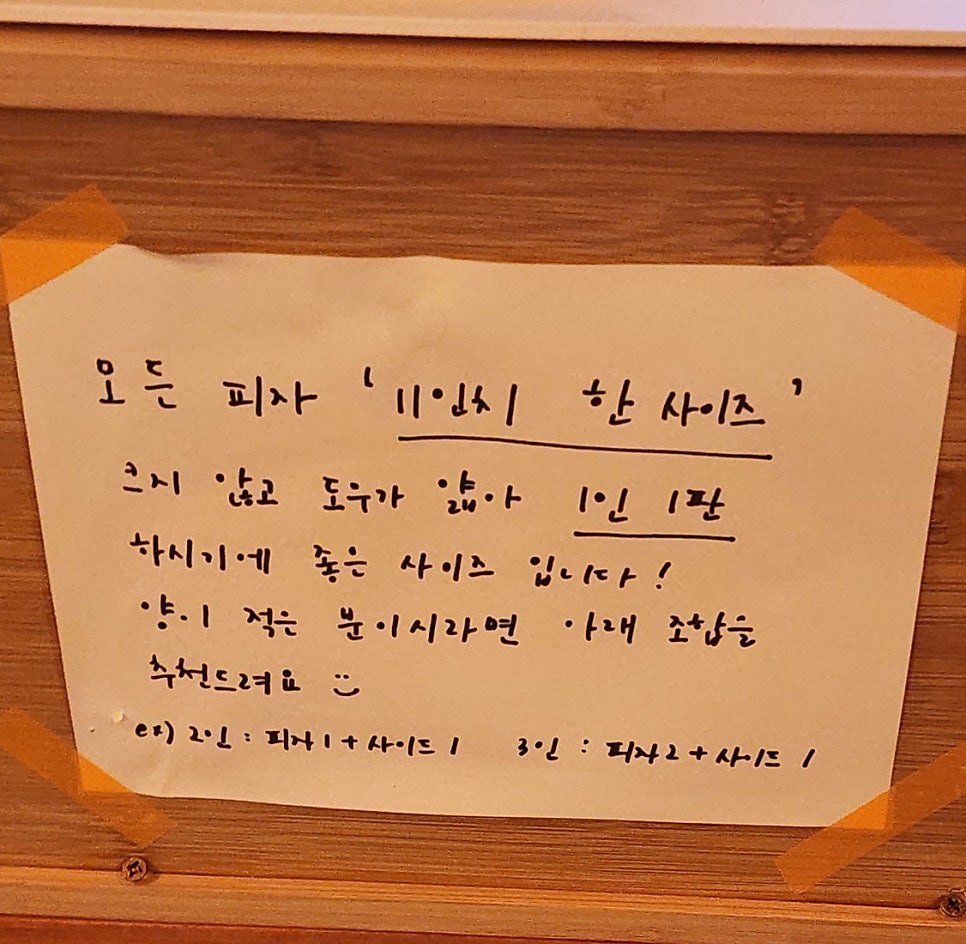 모든 피자 '11인치 한 사이즈'
크지 않고 도우가 얇아 1인 1판
하시기에 좋은 사이즈 입니다!
양이 적은 분이시라면 아래 조합을
추천드려요 :)
ex) 2인 : 피자 1 + 사이드 1 3인 : 피자 2 + 사이드 1